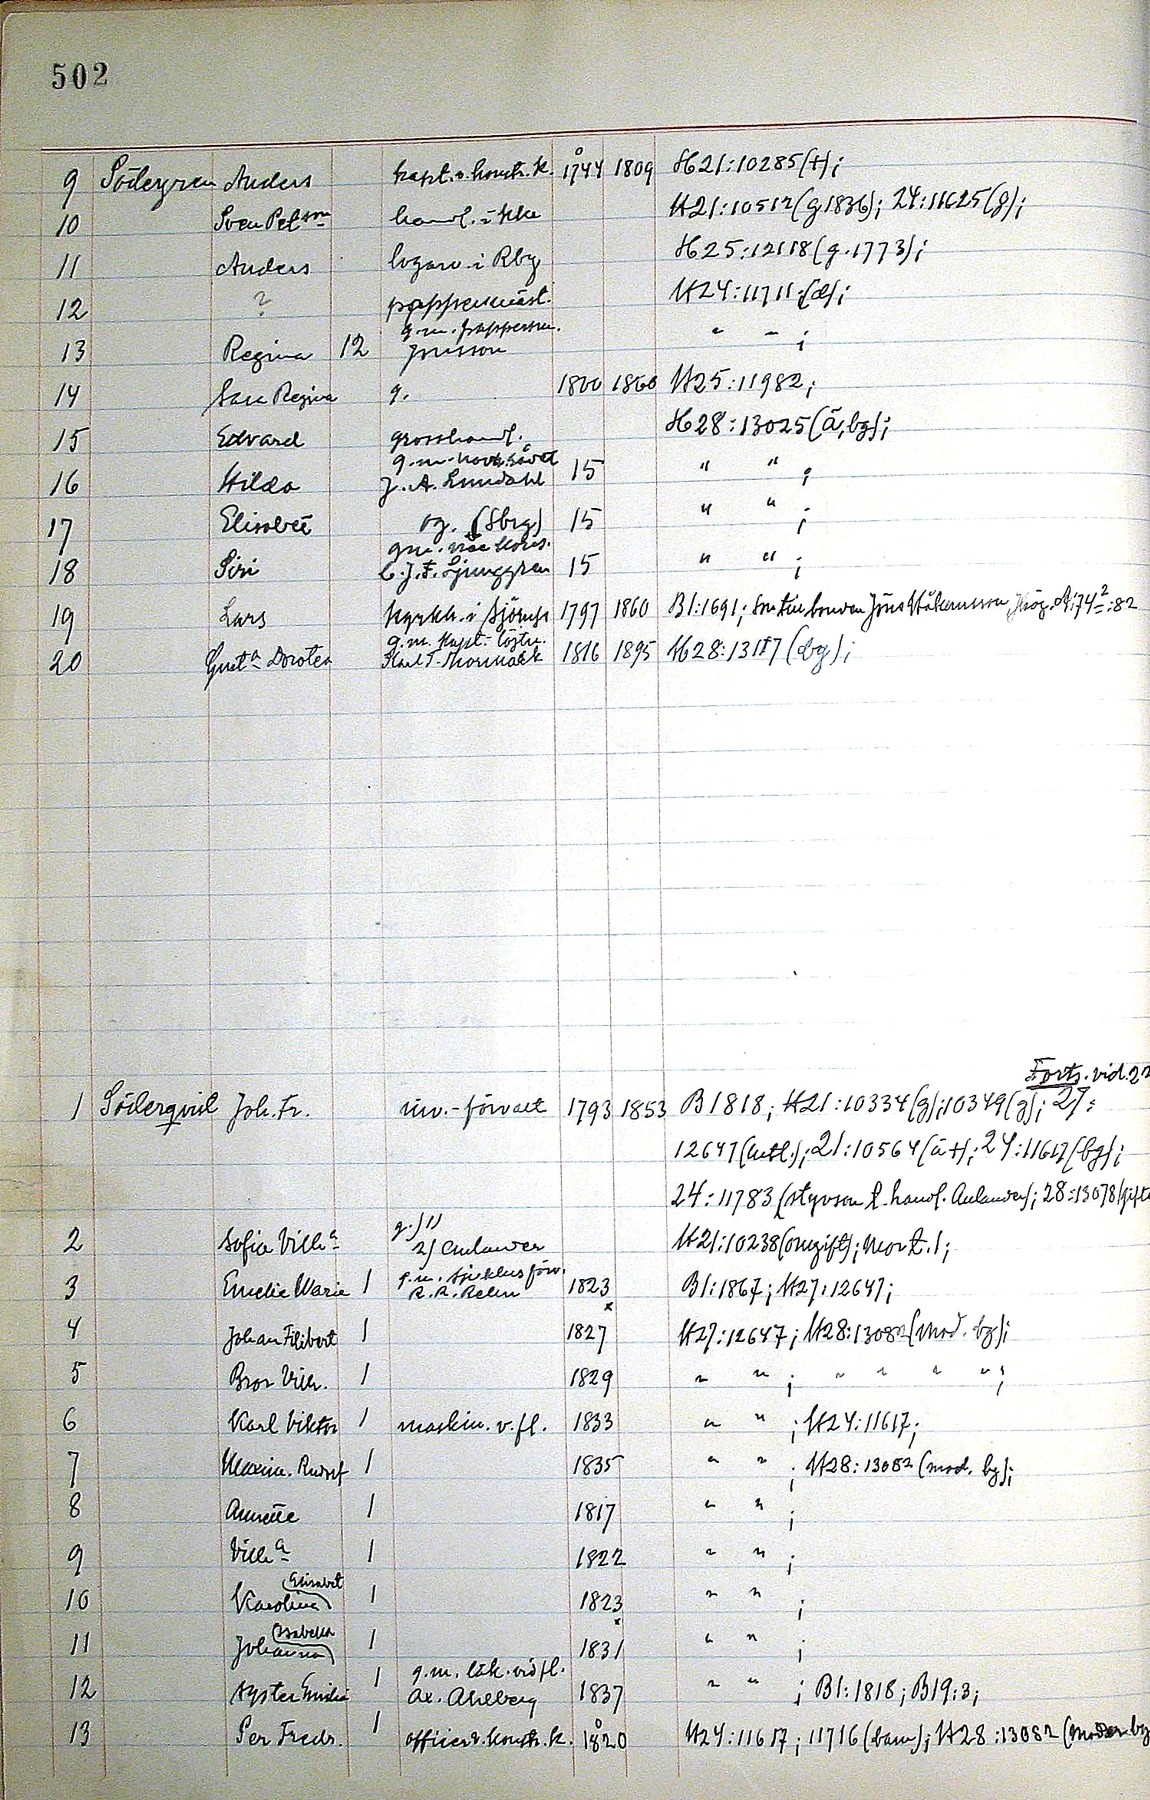 502
9 Södergren Anders kapt. v. konstr. k. 1744 1809 H21:10285(+);
10 Sven Petson handl. i Kka H21:10512(g.1836); 24:11625(g);
11 Anders logarv. i Rbg H25:12118(g.1773);
12 ? H24:11711(d);
g.m.
13 Regina 12 Jonsson " " ;
14 Sara Regina g. 1800 1860 H25:11982;
15 Edvard grosshandl. H28:13025(ä, bg);
g.m.
16 Hilda J. A. Lundahl 15 " " ;
17 Elisabet og. (Sbrg) 15 " " ;
gm. vice
18 Siri C.J.F. Ljunggren 15 " " ;
19 Lars kyrkh. i 1797 1860 B1:1691; son till bonden Jöns Håkansson,
g.m. kapt. löjtn.
20 Gusta Dorotea Karl T. 1816 1895 H28:13117(bg);
Forts. vid. 22
1 Söderqvist Joh. Fr. inv.-förvalt 1793 1853 B1818; H21:10334(g); 10349(g); 27:
12647(antl.); 21:10564(ä+); 24:11617(bg);
24:11783(styvson t. handl. Aulander); 28:13078(gifte
g. 1) 1
2 Sofia Villa 2) Aulander H21:10238(omgift); Mor t. 1;
g.m.
3 Emelie Maria 1 R. R. Relin 1823 B1:1867; H27:12647;
4 Johan Filibert 1 1827 H27:12647; H28:13082(mod. bg);
5 Bror Vilh. 1 1829 " " ; " " " " ;
6 Karl Viktor 1 maskin. v. fl. 1833 " " ; H24:11617;
7 Rudolf 1 1835 " " ; H28:13082(mod. bg);
8 Annette 1 1817 " " ;
9 Villa 1 1822 " " ;
Elisabet
10 Karolina 1 1823 " " ;
Isabella
11 Johanna 1 1831 " " ;
g.m. läk. vid fl.
12 Emilia 1 Ax. Ahlberg 1837 " " ; B1:1818; B19:3;
13 Per Fredr. 1 officer v. konstr. k. 1820 H24:11617; 11716(barn); H28:13082(moder bg